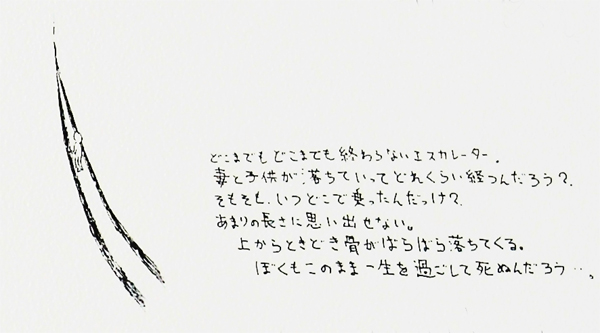 どこまでもどこまでも終わらないエスカレーター。
妻と子供が落ちていってどれくらい経つんだろう?
そもそも、いつどこで乗ったんだっけ?
あまりの長さに思い出せない。
上からときどき骨がばらばら落ちてくる。
ぼくもこのまま一生を過ごして死ぬんだろう…。